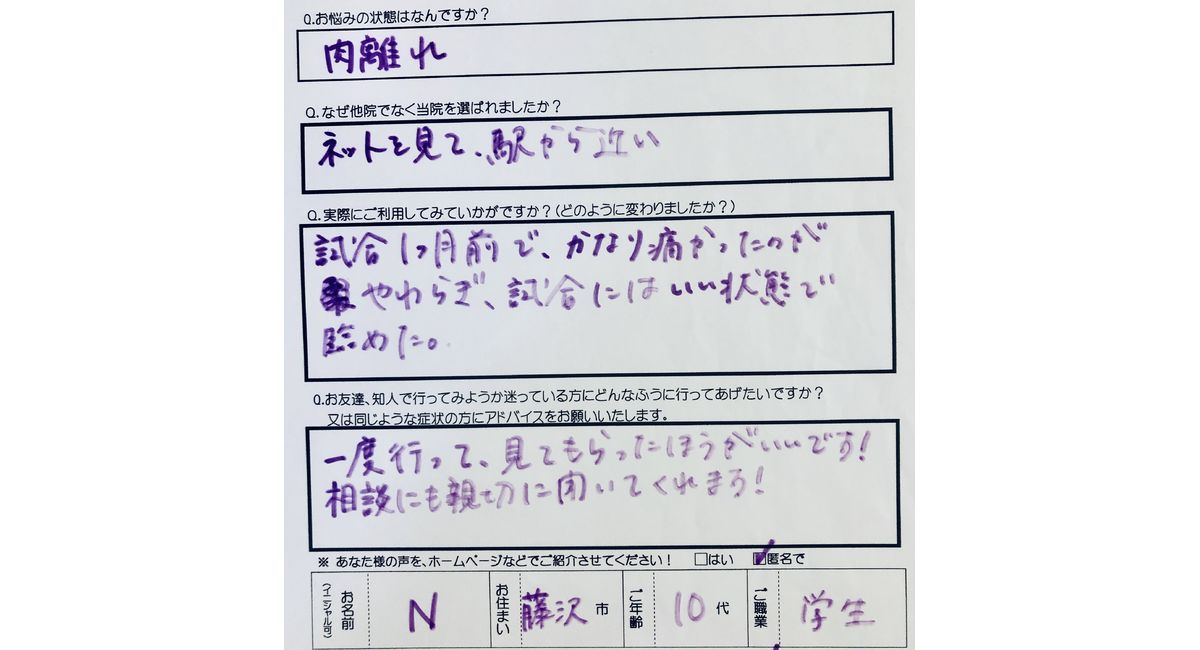 Q.お悩みの状態はなんですか？
肉離れ
Q.なぜ他院でなく当院を選ばれましたか？
ネットを見て、駅から近い
Q.実際にご利用してみていかがですか？（どのように変わりましたか？）
試合1ヶ月前で、かなり痛かったのが
やわらぎ、試合にはいい状態で
臨めた。
Q.お友達、知人で行ってみようか迷っている方にどんなふうに行ってあげたいですか？
又は同じような症状の方にアドバイスをお願いいたします。
一度行って、見てもらったほうがいいです！
相談にも親切に聞いてくれます！
※ あなた様の声を、ホームページなどでご紹介させてください！ □はい ☑匿名で
お名前（イニシャル可） N お住まい 藤沢市 ご年齢 10代 ご職業 学生